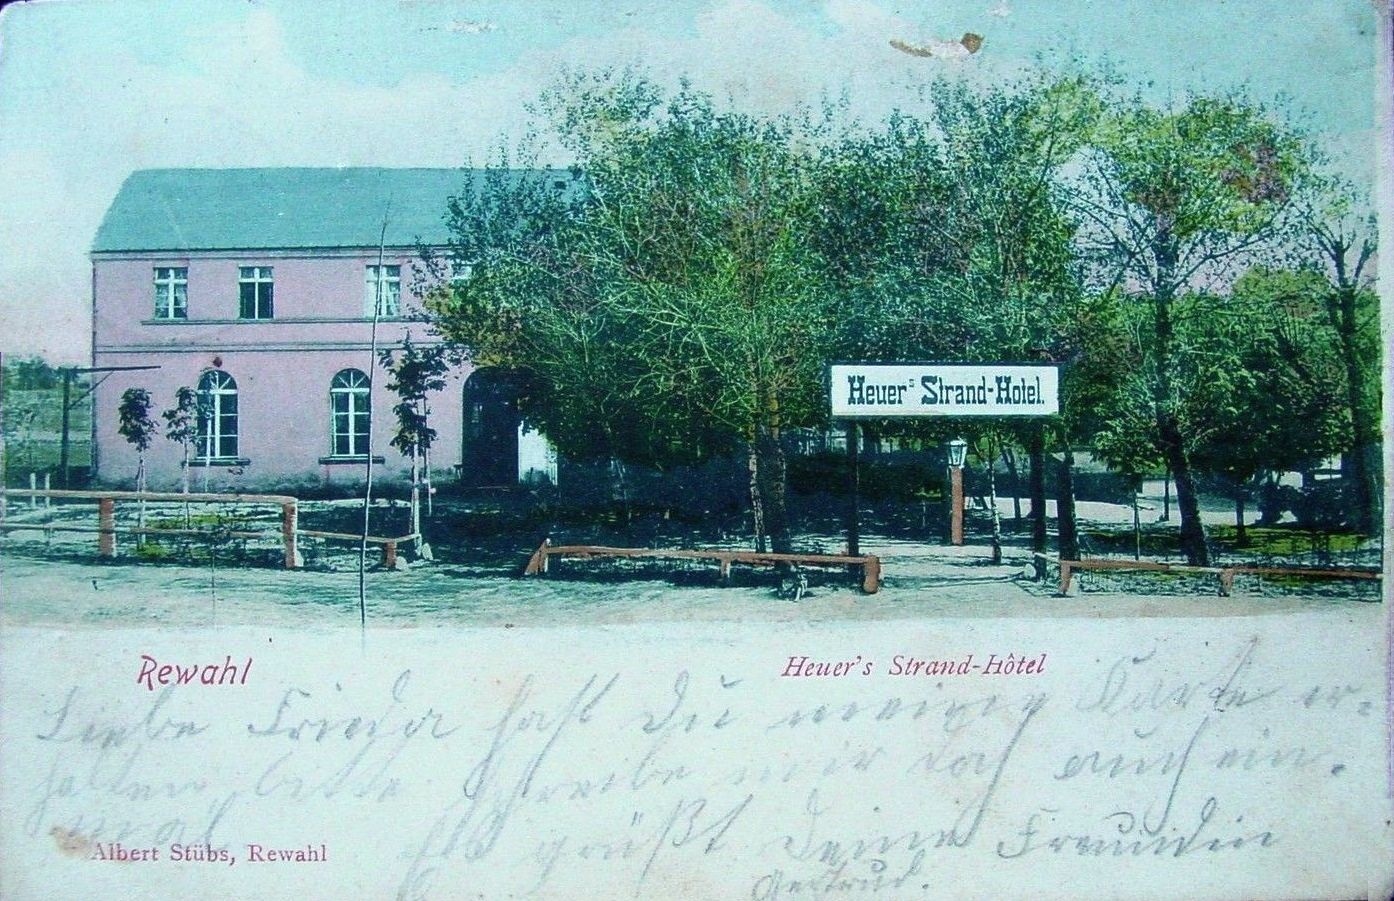 Heuer's Strand-Hotel.
Rewahl
Heuer's Strand-Hôtel
Liebe Frieda hast Du meine Karte er-
halten, bitte schreibe mir doch auch ein-
mal
Albert Stübs, Rewahl
Es grüßt Deine Freundin
Gertrud.